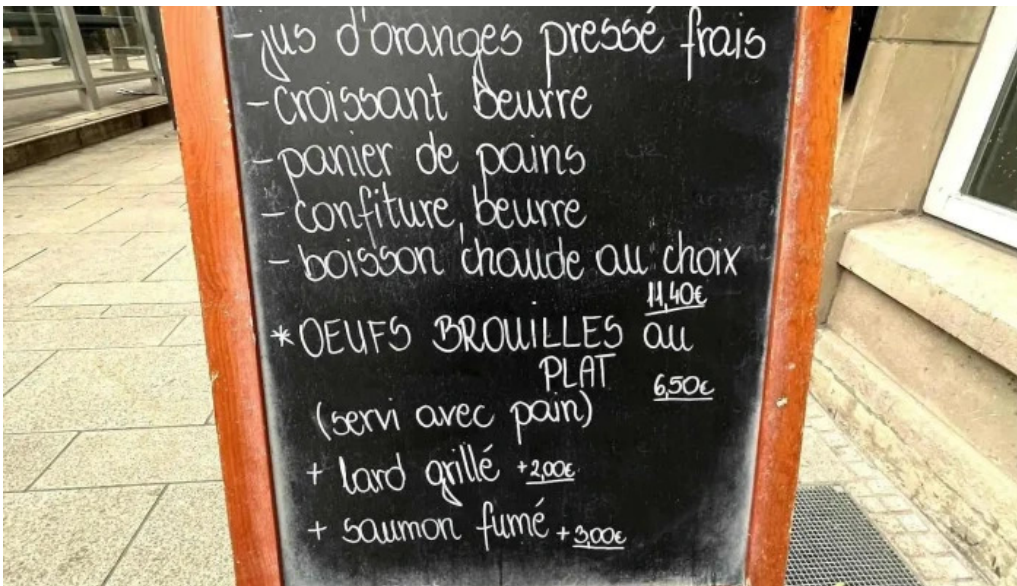 -jus d'oranges pressé frais
-croissant beurre
-panier de pains
-confiture, beurre
-boisson chaude au choix
11,40€
*OEUFS BROUILLES au
PLAT 6,50€
(servi avec pain)
+ lard grillé +2,00€
+ saumon fumé +3,00€